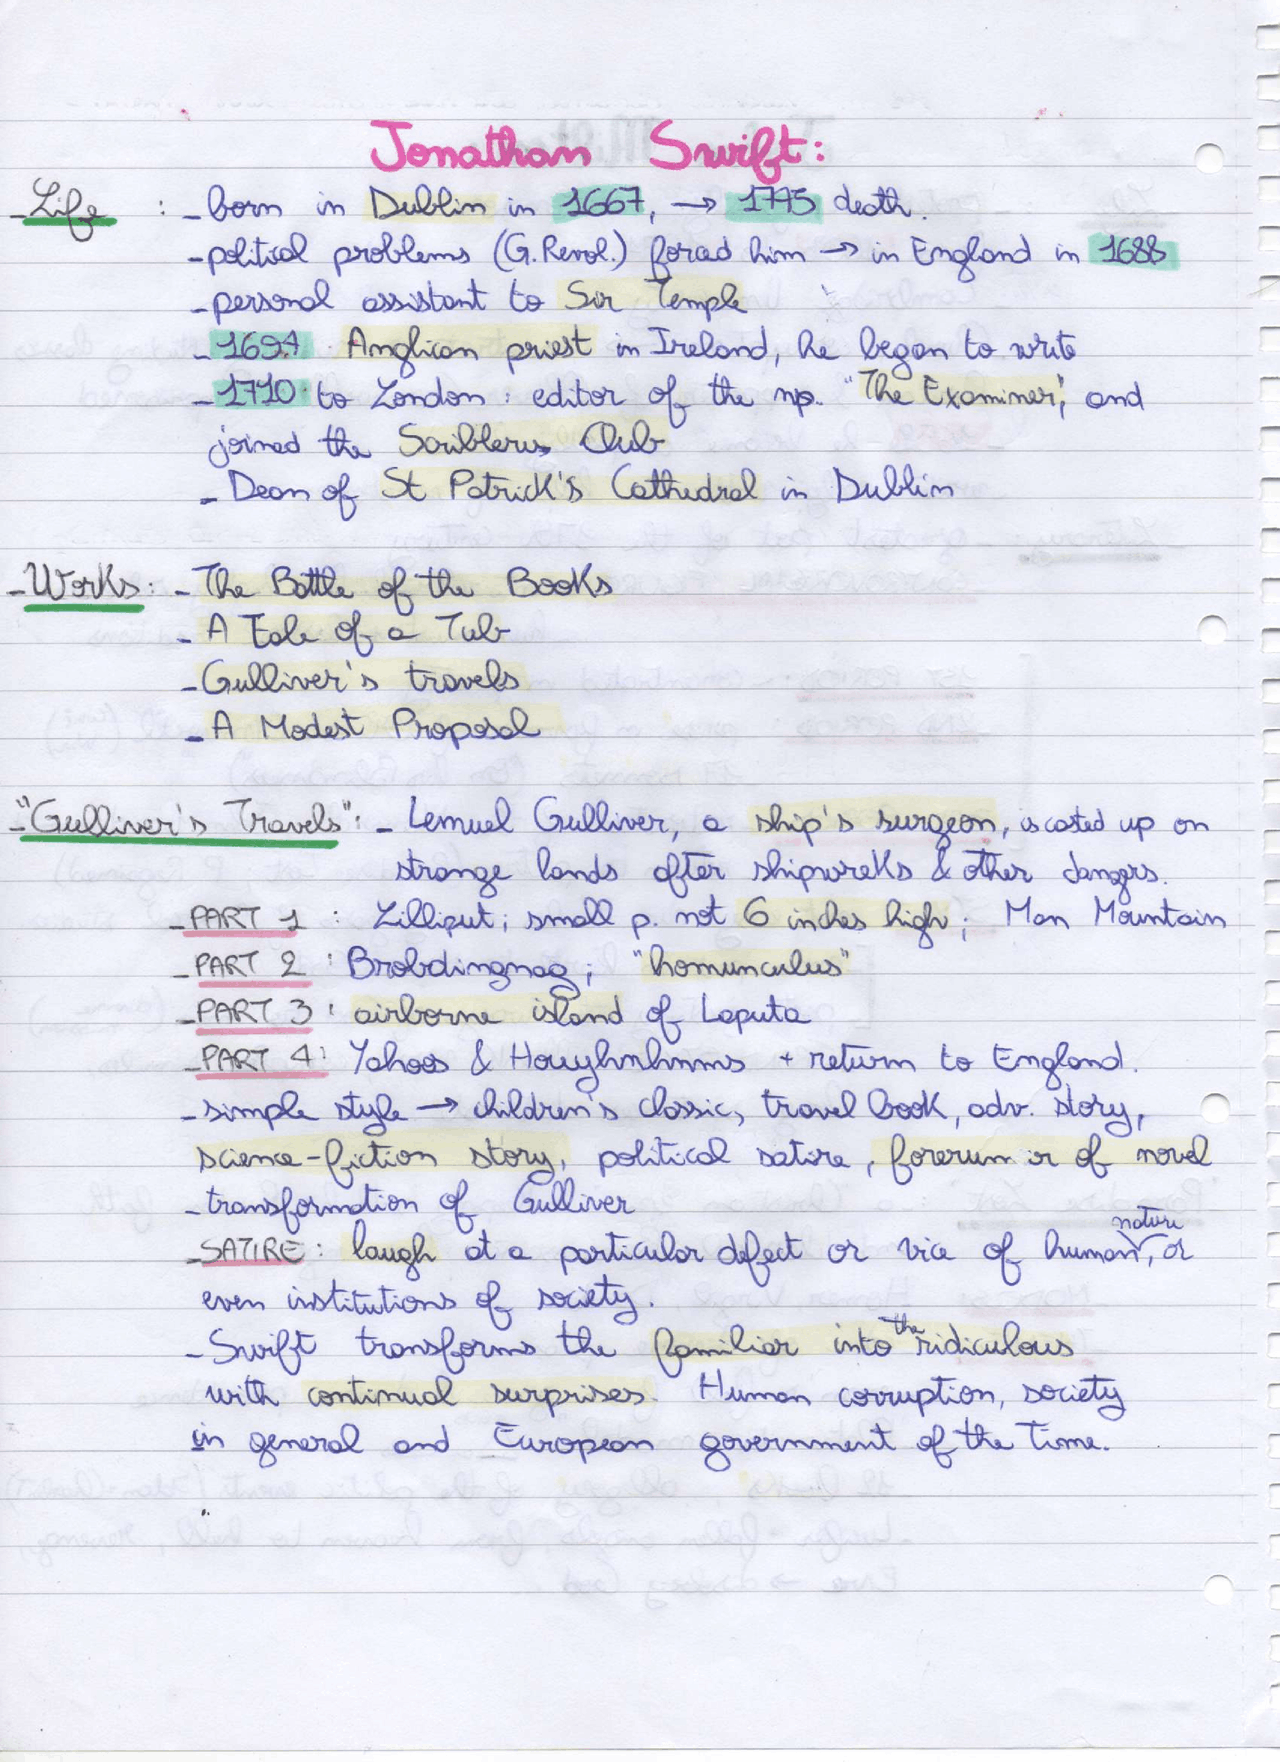 Jonathan Swift:
- Life : - born in Dublin in 1667, → 1745 death.
- political problems (G. Revol.) forced him → in England in 1688
- personal assistant to Sir Temple
- 1694 Anglican priest in Ireland, he began to write
- 1710 to London: editor of the np. "The Examiner", and
joined the Scriblerus Club
- Dean of St Patrick's Cathedral in Dublin
- Works: - The Battle of the Books
- A Tale of a Tub
- Gulliver's travels
- A Modest Proposal
- "Gulliver's Travels": - Lemuel Gulliver, a ship's surgeon, is casted up on
strange lands after shipwreks & other dangers.
- PART 1 : Lilliput; small p. not 6 inches high; Man Mountain
- PART 2 : Brobdingnag; "homunculus"
- PART 3 : airborne island of Laputa
- PART 4: Yahoos & Houyhnhnms + return to England.
- simple style → children's classic, travel book, adv. story,
science-fiction story, political satire, forerunn or of novel
- transformation of Gulliver
- SATIRE: laugh at a particular defect or vice of human nature, or
even institutions of society.
- Swift transforms the familiar into the ridiculous
with continual surprises. Human corruption, society
in general and European government of the Time.